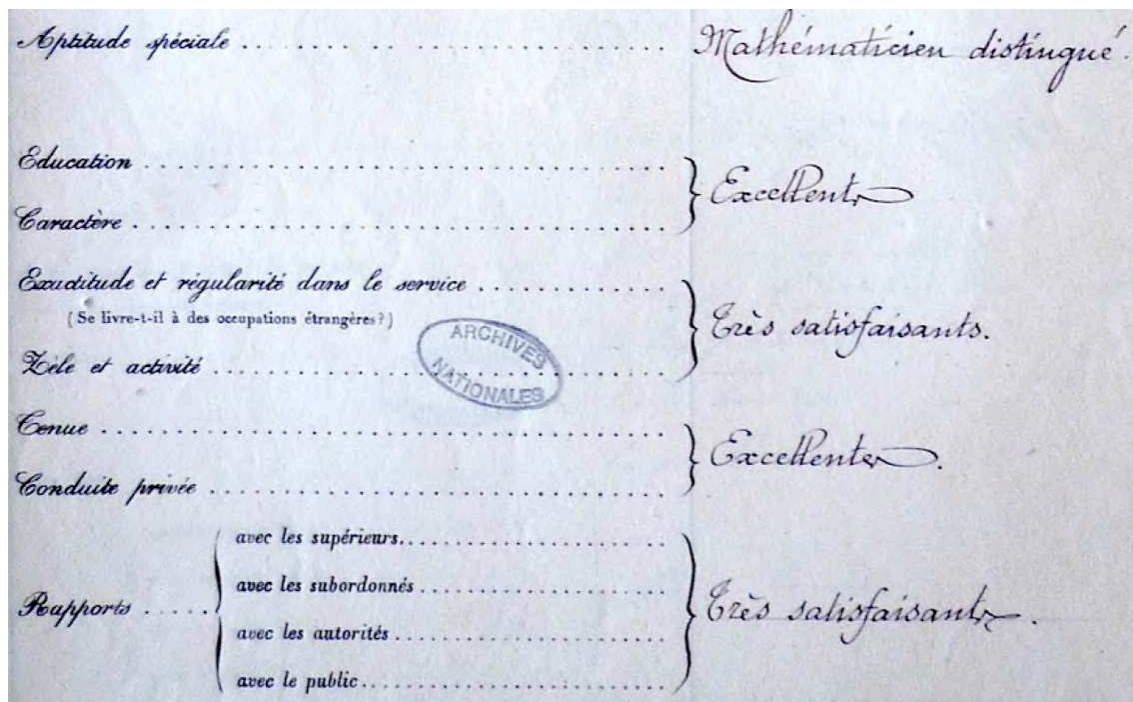 Aptitude spéciale ........................ Mathématicien distingué.
Education ........................
Caractère ........................
Excellents
Exactitude et régularité dans le service ............
(Se livre-t-il à des occupations étrangères?)
Zèle et activité ........................
Très satisfaisants.
ARCHIVES
NATIONALES
Tenue ........................
Conduite privée ........................
Excellentes.
Rapports .....
avec les supérieurs........................
avec les subordonnés ....................
avec les autorités ......................
avec le public........................
Très satisfaisants.